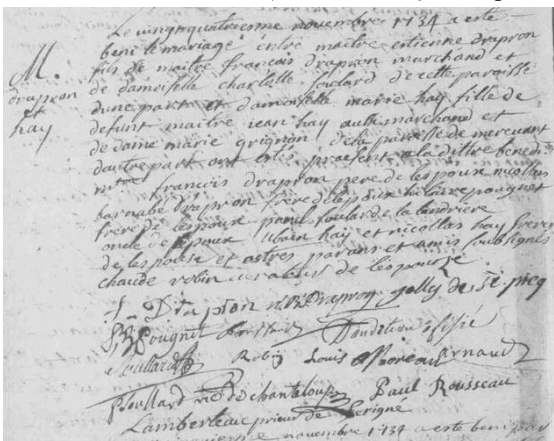 Le vingtquatriesme novembre 1734 a esté
beni le mariage entre maitre estienne drapron
M. fils de maitre francois drapron marchand et
drapron de damoiselle charlotte foulard de cette paroisse
et dune part et damoiselle marie hay fille de
hay defunt maitre iean hay aussi marchand et
de dame marie grignon de la paroisse de
dautre part ont estés praesent a la ditte
francois drapron pere de lespoux nicollas
barnabé drapron frere de lespoux hilaire pougnet
frere de lespoux paul foulard de la
oncle de lespoux ubain hay et nicollas hay freres
de lespouse et autres parans et amis soubsignés
chaude robin curateur de lespouse
Drapron Drapron de St
Pougnet
Robin Louis Moreau Arnaud
de chanteloup Paul Rousseau
Lamberteau prieur de Perigné
novembre 1734 a este beni par